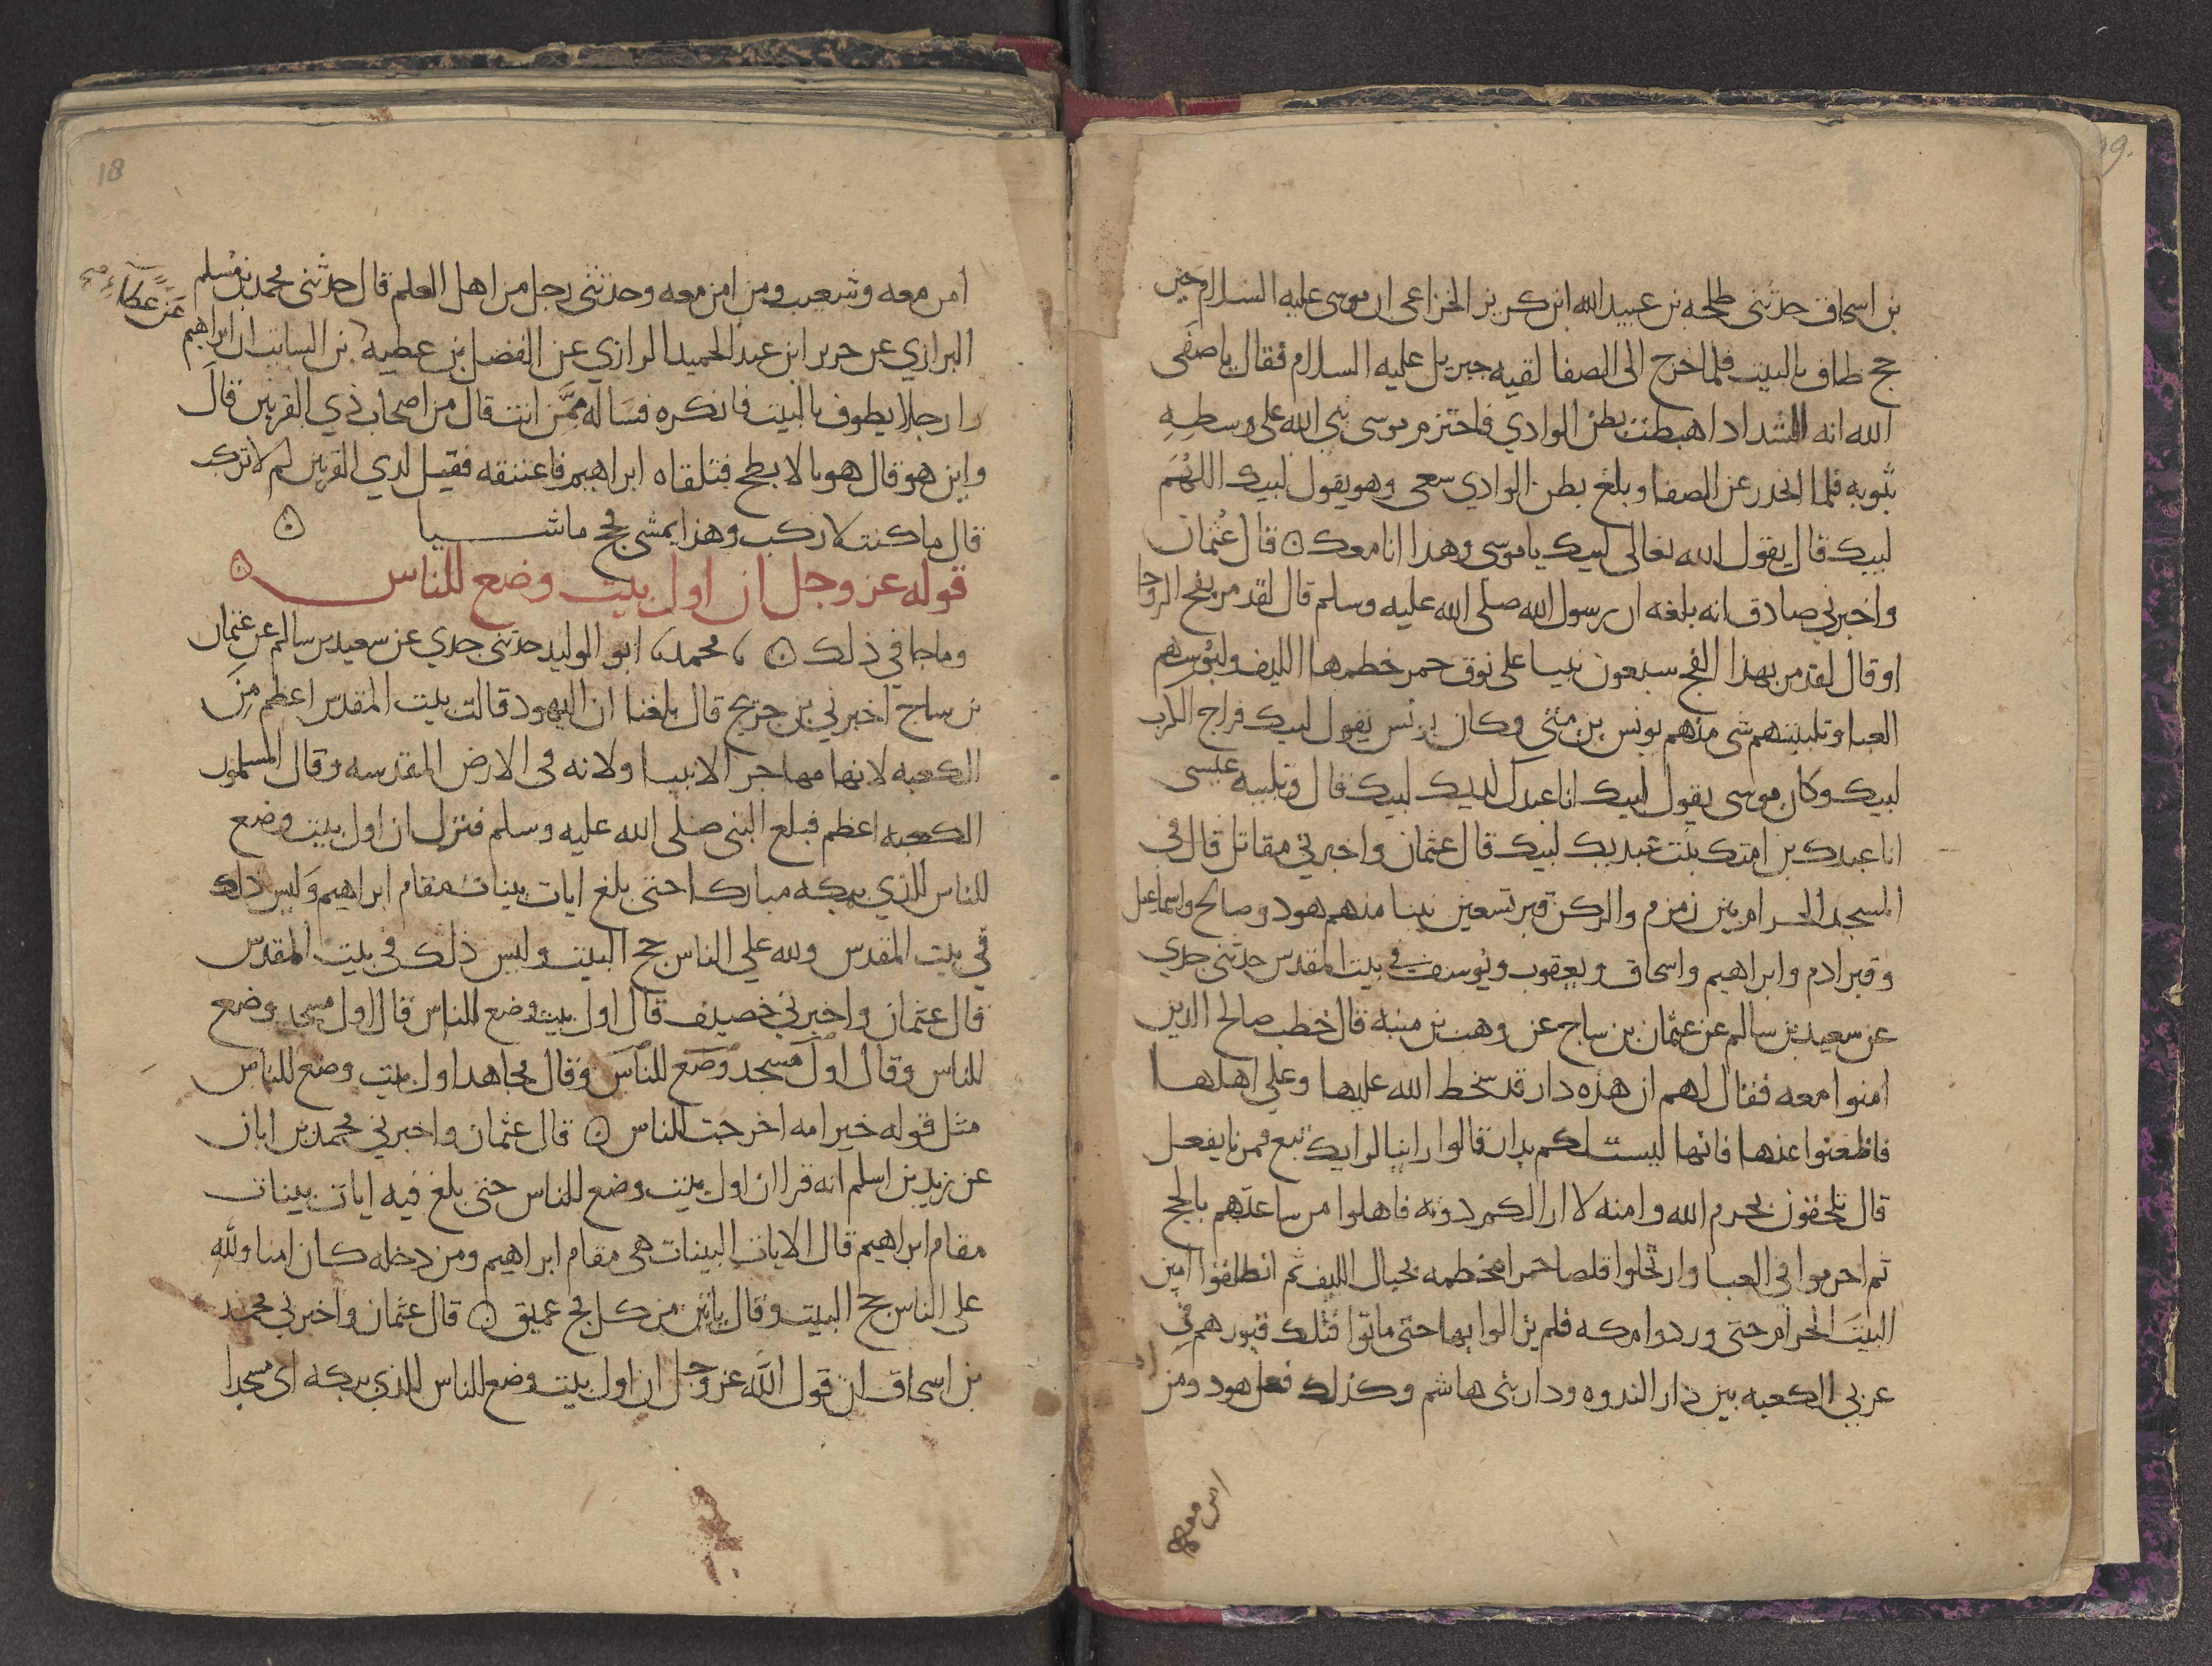 بن اسحاق حدثنى طلحه بن عبيد الله ابن كريز الخزاعى ان موسى عليه السلام حين
حج طاف بالبيت فلما خرج الى الصفا لقيه جبريل عليه السلام فقال يا صفى
الله انه الشد اذا هبطت بطن الوادي فاحتزم موسى نبى الله على وسطه
بثوبه فلما انحدر عن الصفا وبلغ بطن الوادي سعى وهو يقول لبيك اللهم
لبيك قال يقول الله تعالى لبيك يا موسى وهذا انا معك ٥ قال عثمان
واخبرني صادق انه بلغه ان رسول الله صلى الله عليه وسلم قال لقد مر بفج الروحا
او قال لقد مر بهذا الفج سبعون نبيا على نوق حمر خطمها الليف ولبوسهم
العبا وتلبيتهم شى منهم يونس بن متى وكان يونس يقول لبيك فراج الكرب
لبيك وكان موسى يقول لبيك انا عبدك لديك لبيك قال وتلبيه عيسى
انا عبدك بن امتك بنت عبديك لبيك قال عثمان واخبرني مقاتل قال فى
المسجد الحرام بين زمزم والركن قبر تسعين نبيا منهم هود وصالح واسماعيل
وقبر ادم وابراهيم واسحاق ويعقوب ويوسف في بيت المقدس حدثنى جدي
عن سعيد بن سالم عن عثمان بن ساج عن وهب بن منبه قال خطب صالح الذين
امنوا معه فقال لهم ان هذه دار قد سخط الله عليها وعلى اهلها
فاظعنوا عنها فانها ليست لكم بدار قالوا راينا لرايك تبع فمرنا نفعل
قال تلحقون بحرم الله وامنه لا ارى لكم دونه فاهلوا من ساعتهم بالحج
ثم احرموا في العبا وارتحلوا قلصا حمرا مخطمه بحبال الليف ثم انطلقوا امين
البيت الحرام حتى وردوا مكه فلم يزالوا بها حتى ماتوا فتلك قبورهم فى
غربي الكعبه بين دار الندوه ودار بنى هاشم وكذلك فعل هود ومن
امن معه
18
امن معه وشعيب ومن امن معه وحدثنى رجل من اهل العلم قال حدثنى محمد بن مسلم
عن عطاء صح
الرازي عن جرير ابن عبد الحميد الرازي عن الفضل بن عطيه بن السايب ان ابراهيم
را رجلا يطوف بالبيت فانكره فساله ممن انت قال من اصحاب ذي القرنين قال
واين هو قال هو بالابطح فتلقاه ابراهيم فاعتنقه فقيل لذي القرنين لم لا تركب
قال ما كنت لاركب وهذا يمشى لحج ماشيا ٥
قوله عز وجل ان اول بيت وضع للناس ٥
وما جا في ذلك ٥ محمد ابو الوليد حدثنى جدي عن سعيد بن سالم عن عثمان
بن ساج اخبرني بن جريج قال بلغنا ان اليهود قالت بيت المقدس اعظم من
الكعبه لانها مهاجر الانبيا ولانه فى الارض المقدسه وقال المسلمون
الكعبه اعظم فبلغ النبى صلى الله عليه وسلم فنزل ان اول بيت وضع
للناس للذي ببكه مباركا حتى بلغ ايات بينات مقام ابراهيم وليس ذلك
في بيت المقدس ولله على الناس حج البيت وليس ذلك فى بيت المقدس
قال عثمان واخبرني خصيف قال اول بيت وضع للناس قال اول مسجد وضع
للناس وقال اول مسجد وضع للناس وقال مجاهد اول بيت وضع للناس
مثل قوله خير امه اخرجت للناس ٥ قال عثمان واخبرني محمد بن ابان
عن زيد بن اسلم انه قرا ان اول بيت وضع للناس حتى بلغ فيه ايات بينات
مقام ابراهيم قال الايات البينات هى مقام ابراهيم ومن دخله كان امنا ولله
على الناس حج البيت وقال ياتين من كل فج عميق ٥ قال عثمان واخبرني محمد
بن اسحاق ان قول الله عز وجل ان اول بيت وضع للناس للذي ببكه اى مسجدا